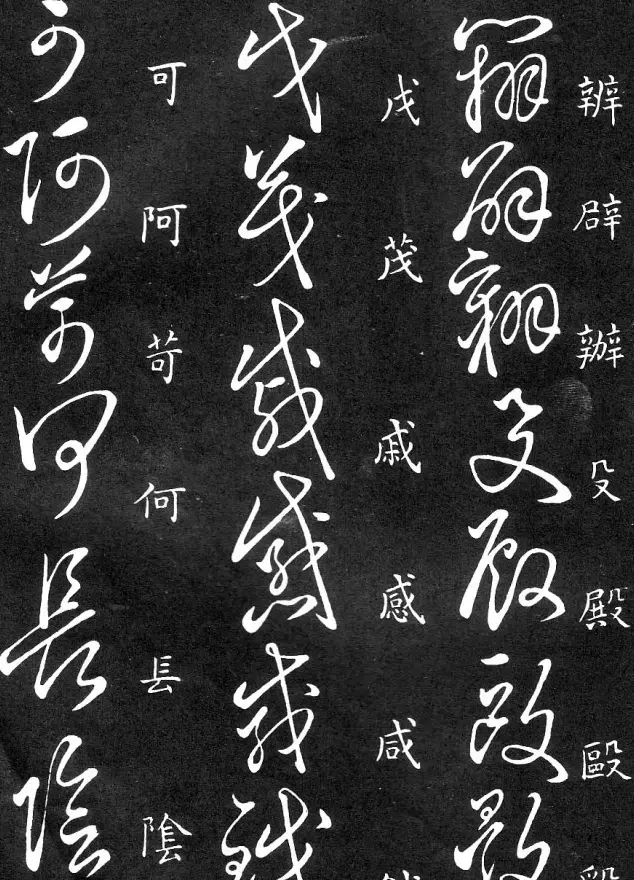 辨辟辦殳殿毆
戊茂戚感咸
可阿苛何長陰